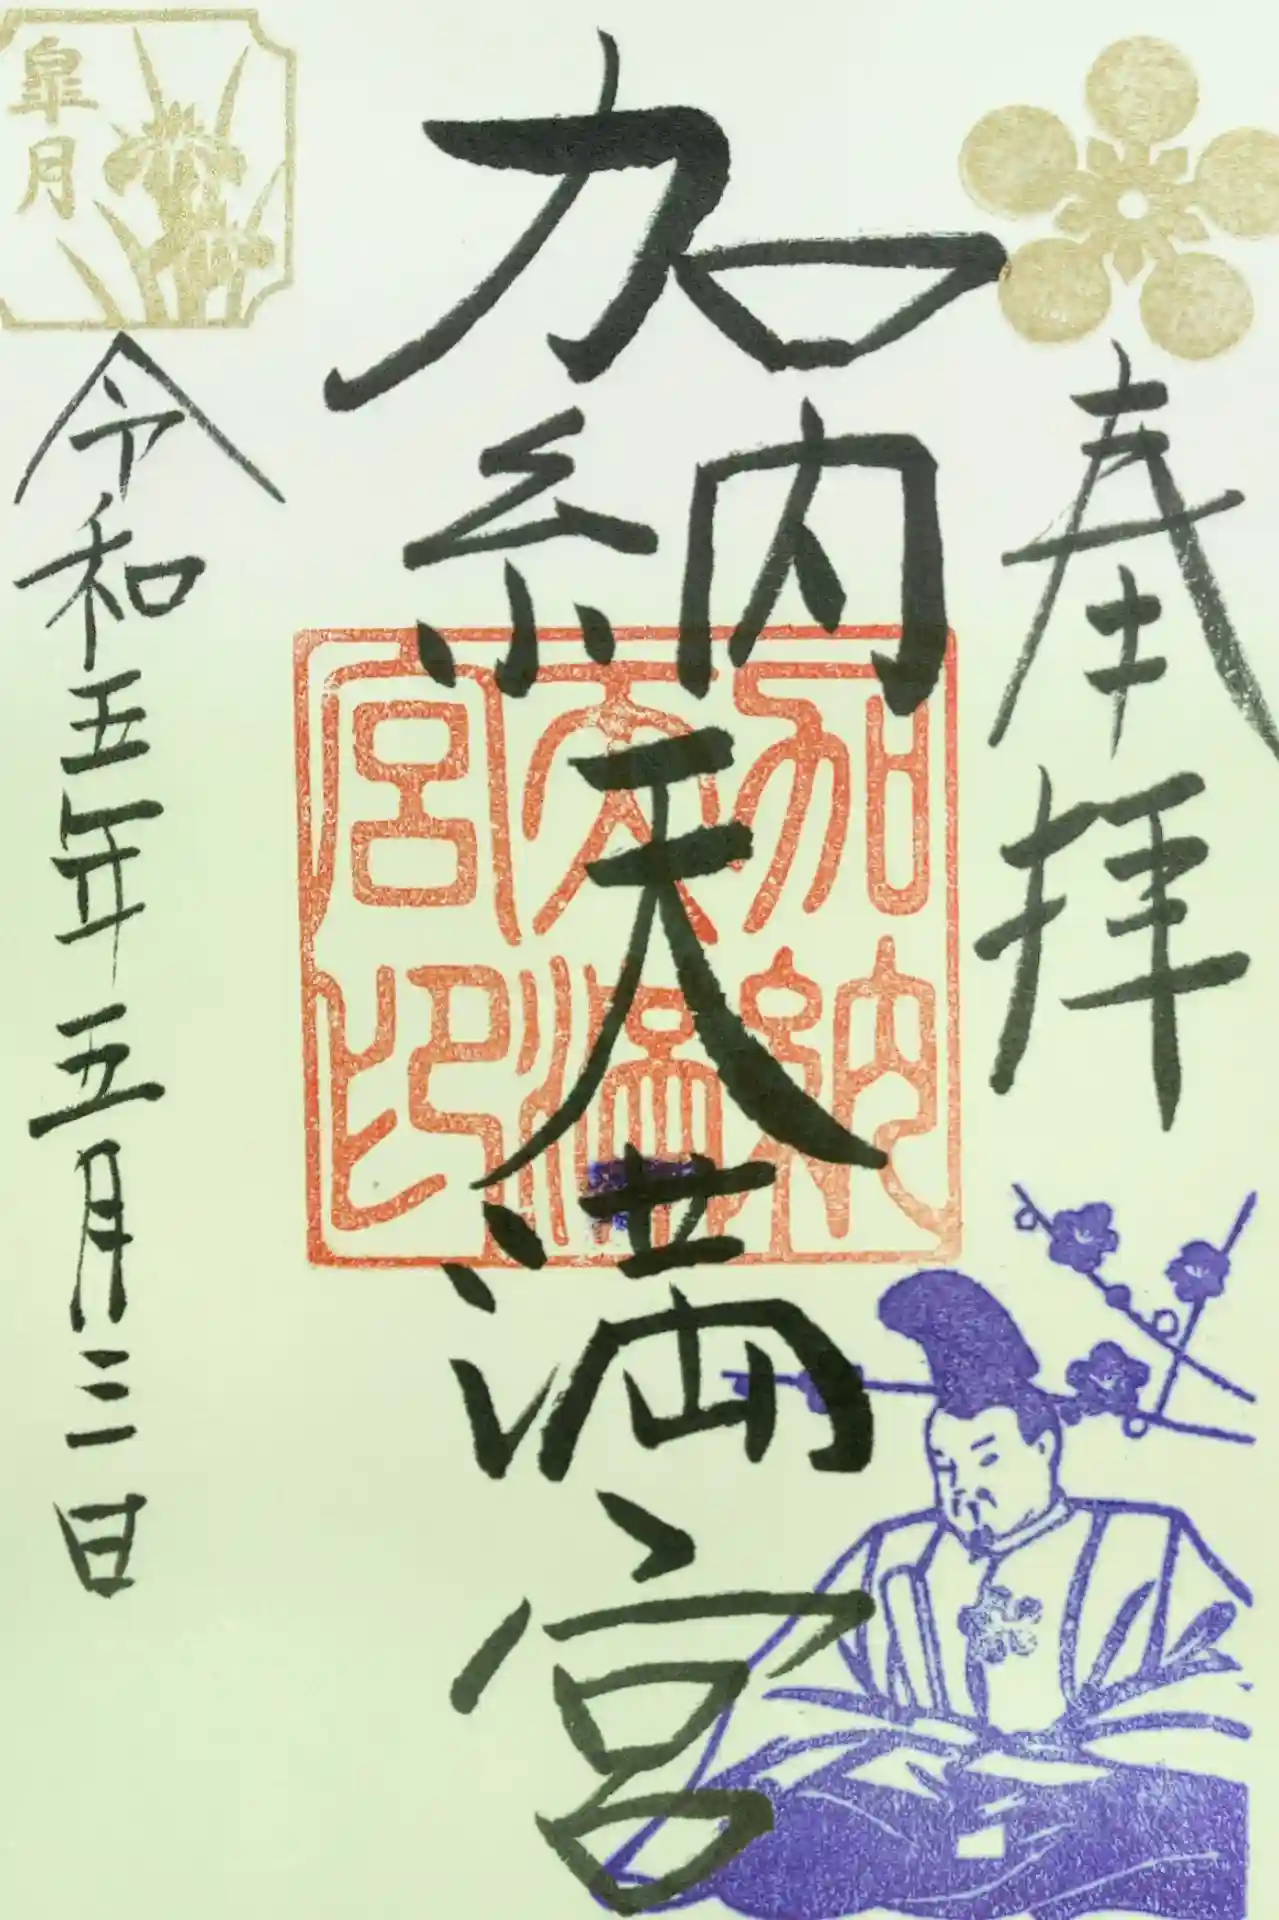 奉拝
加納天満宮
加納
天満
宮印
皐月
令和五年五月三日